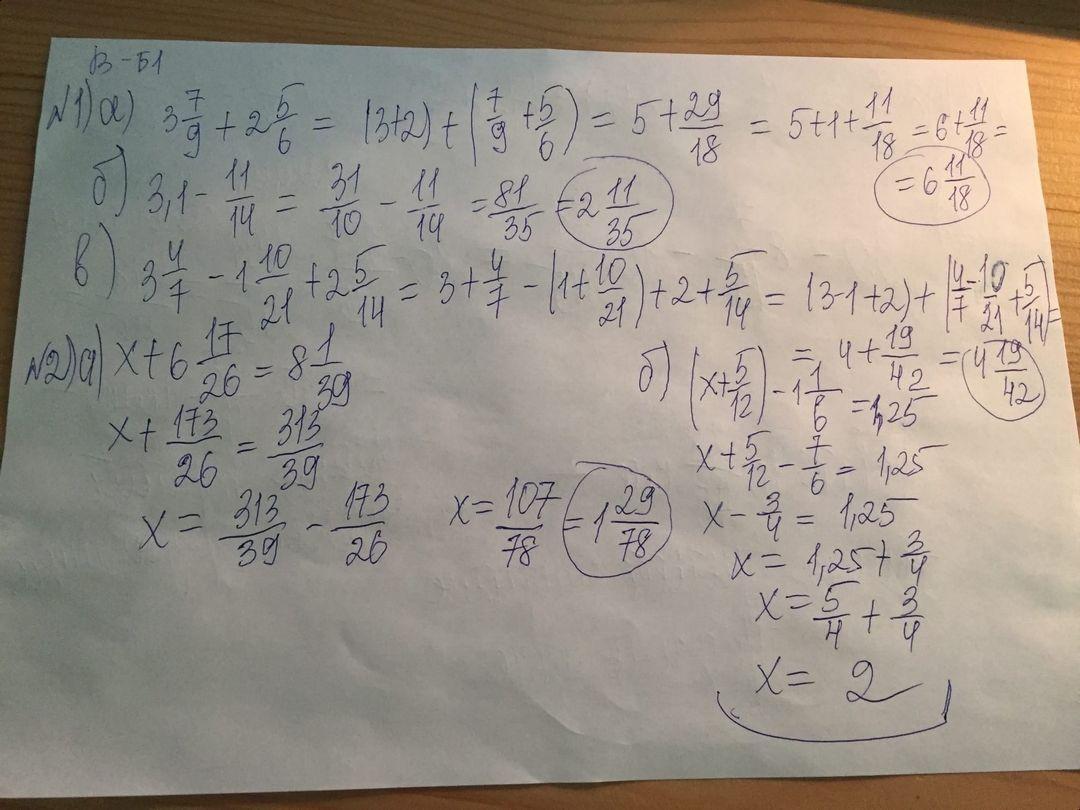 В-Б1
№1) а) 3 7/9 + 2 5/6 = (3+2) + (7/9 + 5/6) = 5 + 29/18 = 5+1+ 11/18 = 6 + 11/18 =
= 6 11/18
б) 3,1 - 11/14 = 31/10 - 11/14 = 81/35 = 2 11/35
в) 3 4/7 - 1 10/21 + 2 5/14 = 3 + 4/7 - (1 + 10/21) + 2 + 5/14 = (3-1+2) + (4/7 - 10/21 + 5/14) =
= 4 + 19/42 = 4 19/42
№2) а) x + 6 17/26 = 8 1/39
x + 173/26 = 313/39
x = 313/39 - 173/26
x = 107/78 = 1 29/78
б) (x + 5/12) - 1 1/6 = 1,25
x + 5/12 - 7/6 = 1,25
x - 3/4 = 1,25
x = 1,25 + 3/4
x = 5/4 + 3/4
x = 2